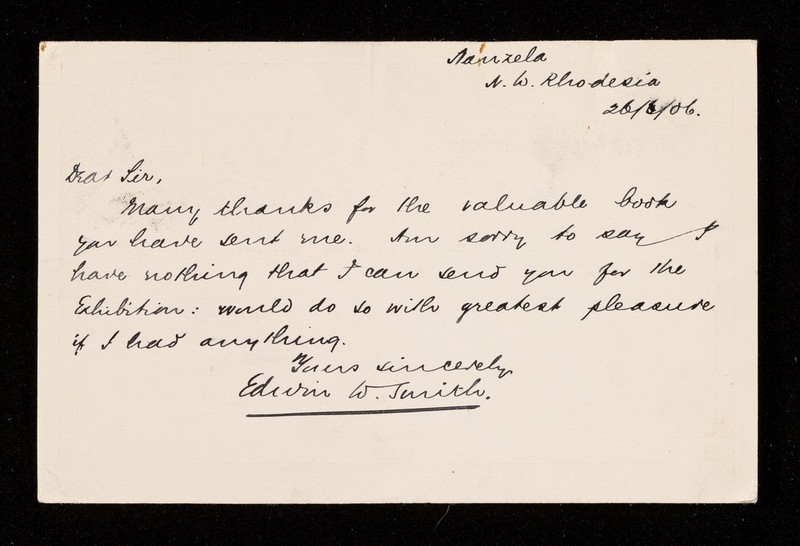 Nanzela
N. W. Rhodesia
26/6/06.
Dear Sir,
Many thanks for the valuable book
you have sent me. Am sorry to say I
have nothing that I can send you for the
Exhibition: would do so with greatest pleasure
if I had anything.
Yours sincerely
Edwin W. Smith.